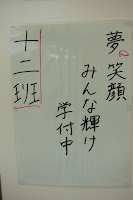 夢笑顔
みんな輝け
学付中
十二班